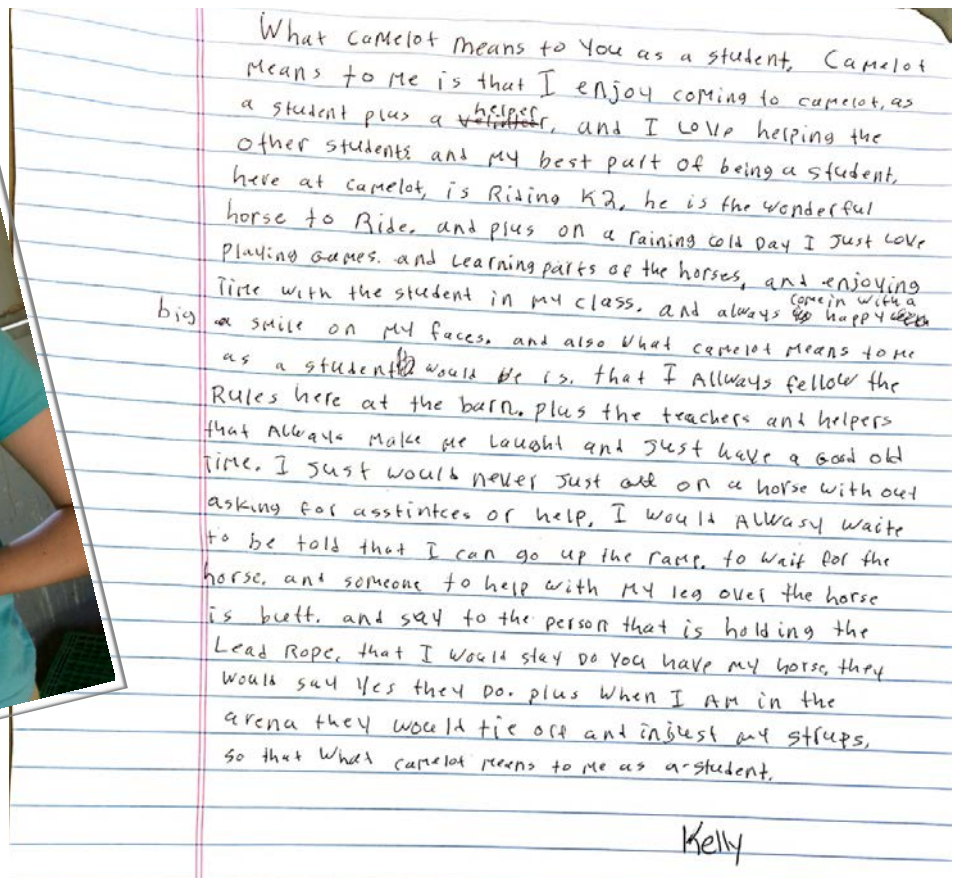 What Camelot means to You as a student. Camelot
Means to Me is that I enjoy coming to camelot, as
a student plus a helper, and I Love helping the
other students and My best part of being a student,
here at camelot, is Riding K2, he is the wonderful
horse to Ride. and plus on a raining cold Day I Just Love
Playing Games. and Learning parts of the horses, and enjoying
Time with the student in my class. and always happy come in with a
big smile on My faces. and also What camelot Means to Me
as a student would be is. that I Allways fellow the
Rules here at the barn. plus the teachers and helpers
that Always Make Me Laught and Just have a Good old
Time. I Just would never Just on a horse with out
asking for asstintces or help, I would ALWasy waite
to be told that I can go up the ramp. to wait for the
horse. and someone to help with My leg over the horse
is butt. and say to the person that is holding the
Lead Rope, that I would stay Do You have my horse, they
would say Yes they Do. plus When I AM in the
arena they would tie off and injust my strups,
so that What camelot Means to Me as a student.
Kelly